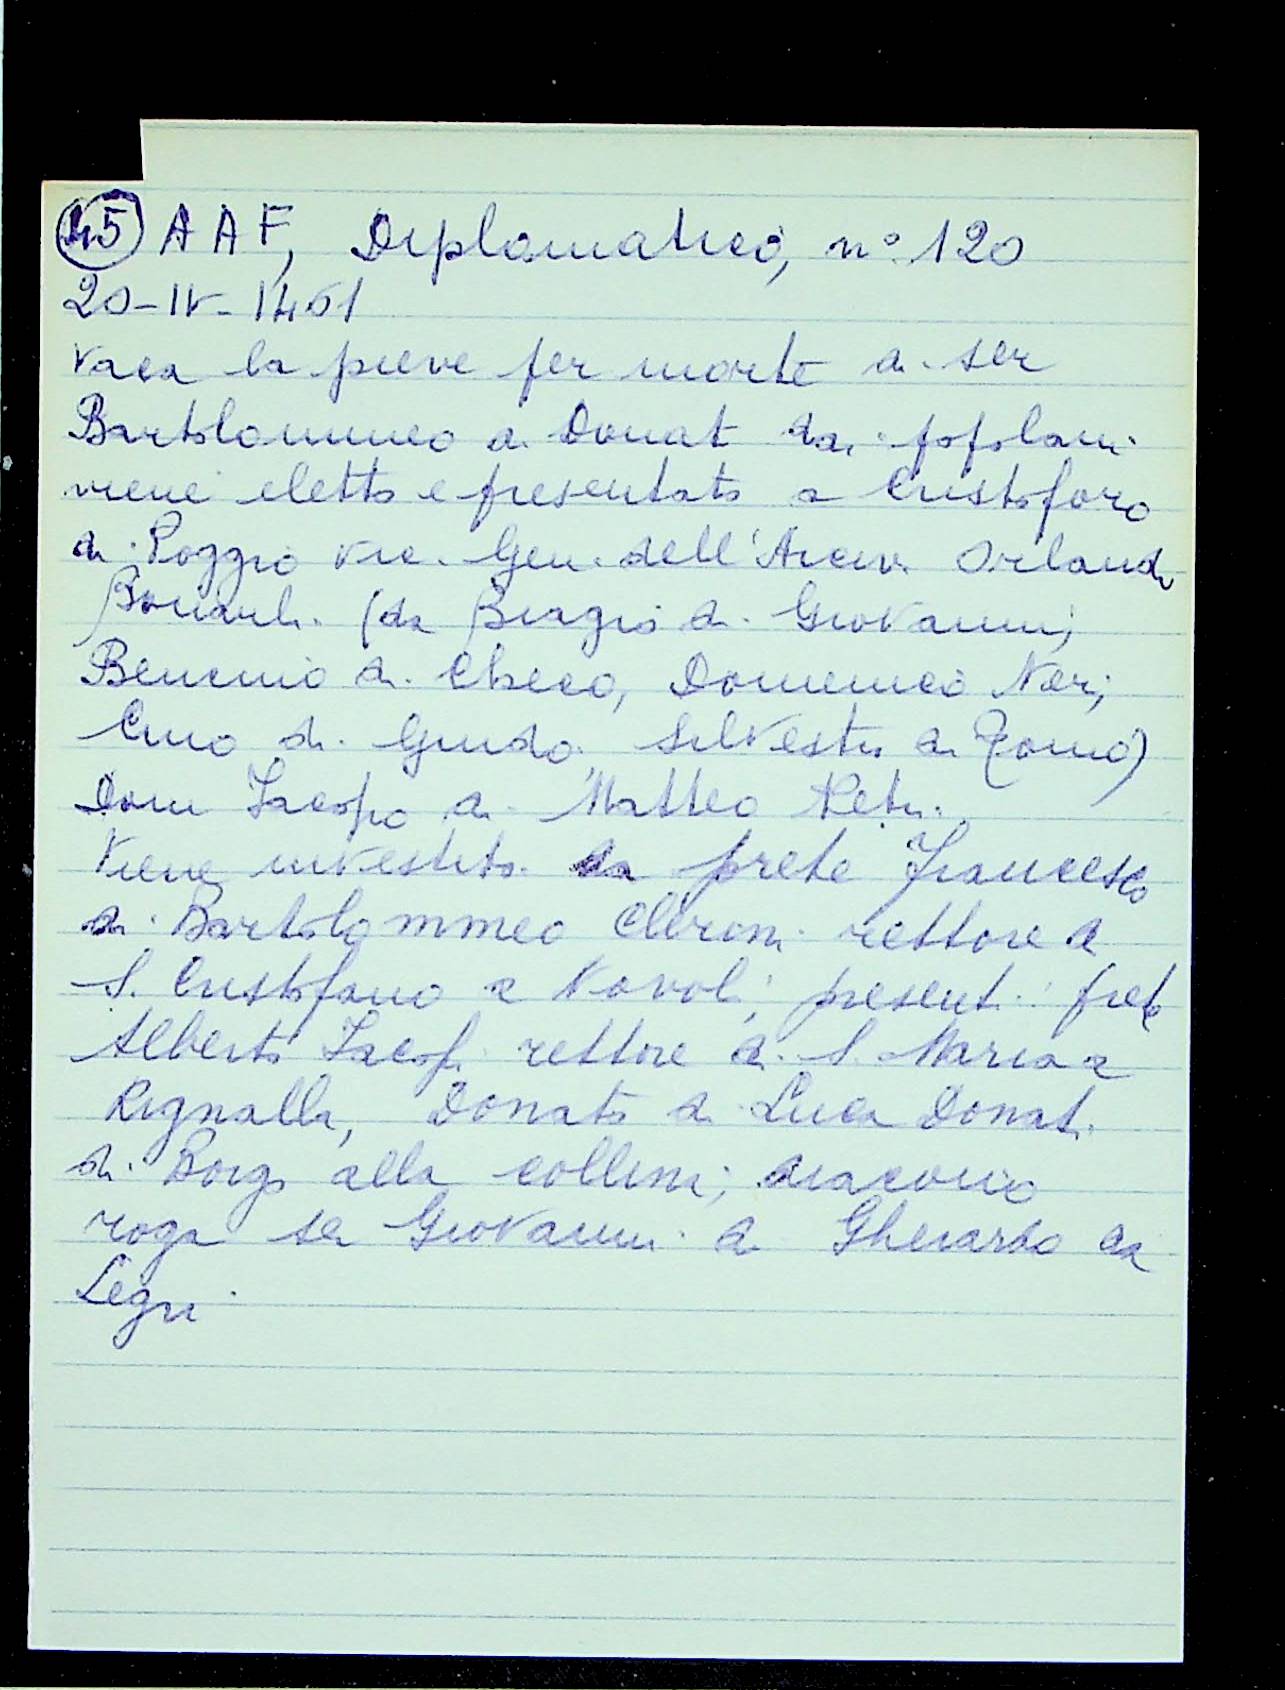 45 AAF, Diplomatico, n° 120
20-IV-1461
Vaca la pieve per morte di ser
Bartolommeo di Donat dai popolani
viene eletto e presentato a Cristoforo
di Poggio Vic. Gen. dell'Arciv. Orlando
Bonarli (da Biagio di Giovanni,
Benincio di Checco, Domenico Neri,
Cino di Guido, Silvestro di Tomio)
Dom Jacopo di Matteo Petri.
Viene investito da prete Francesco
di Bartolommeo rettore di
S. Cristofano a Novoli; present. prete
Alberto Jacopi rettore di S. Maria a
Rignalla, Donato di Luca Donati
di Borgo alla Collina; diacono
roga ser Giovanni di Gherardo da
Legri.